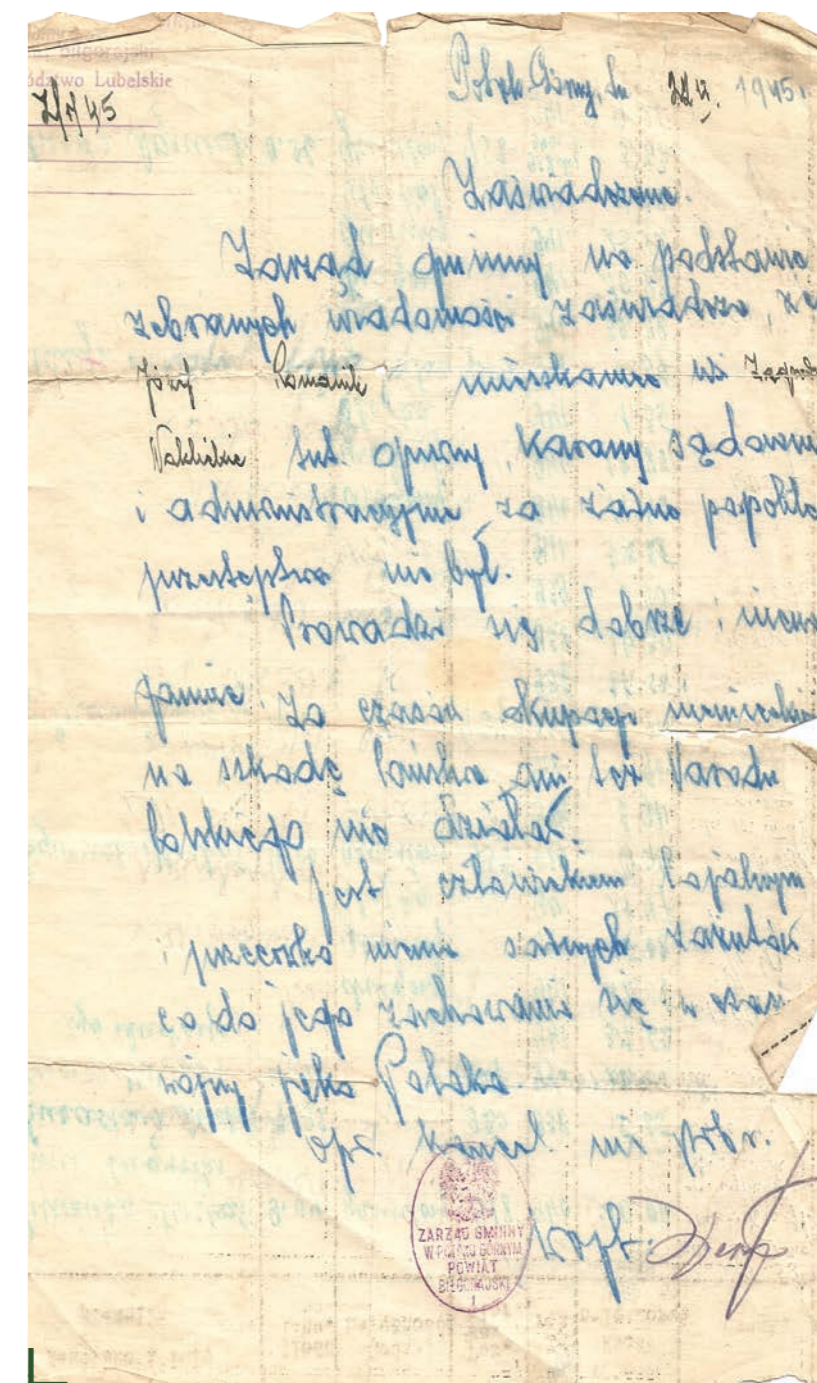 Biłgorajski
Lubelskie
Potok Górny, dn 1945 r.
Zaświadczenie.
Zarząd gminy na podstawie
zebranych wiadomości zaświadcza, że
Józef mieszkaniec wsi
tut. gminy, karany sądownie
i administracyjnie za żadne pospolite
przestępstwo nie był.
Prowadzi się dobrze i
Za czasów okupacji
na szkodę Państwa ani też Narodu
Polskiego nie działał.
Jest człowiekiem lojalnym
i przeciwko niemu żadnych zarzutów
co do jego zachowania się w czas
wojny jako Polaka.
Opł. kancel. nie pobr.
Wójt.
ZARZĄD GMINNY
W POTOKU GÓRNYM
POWIAT
BIŁGORAJSKI
1